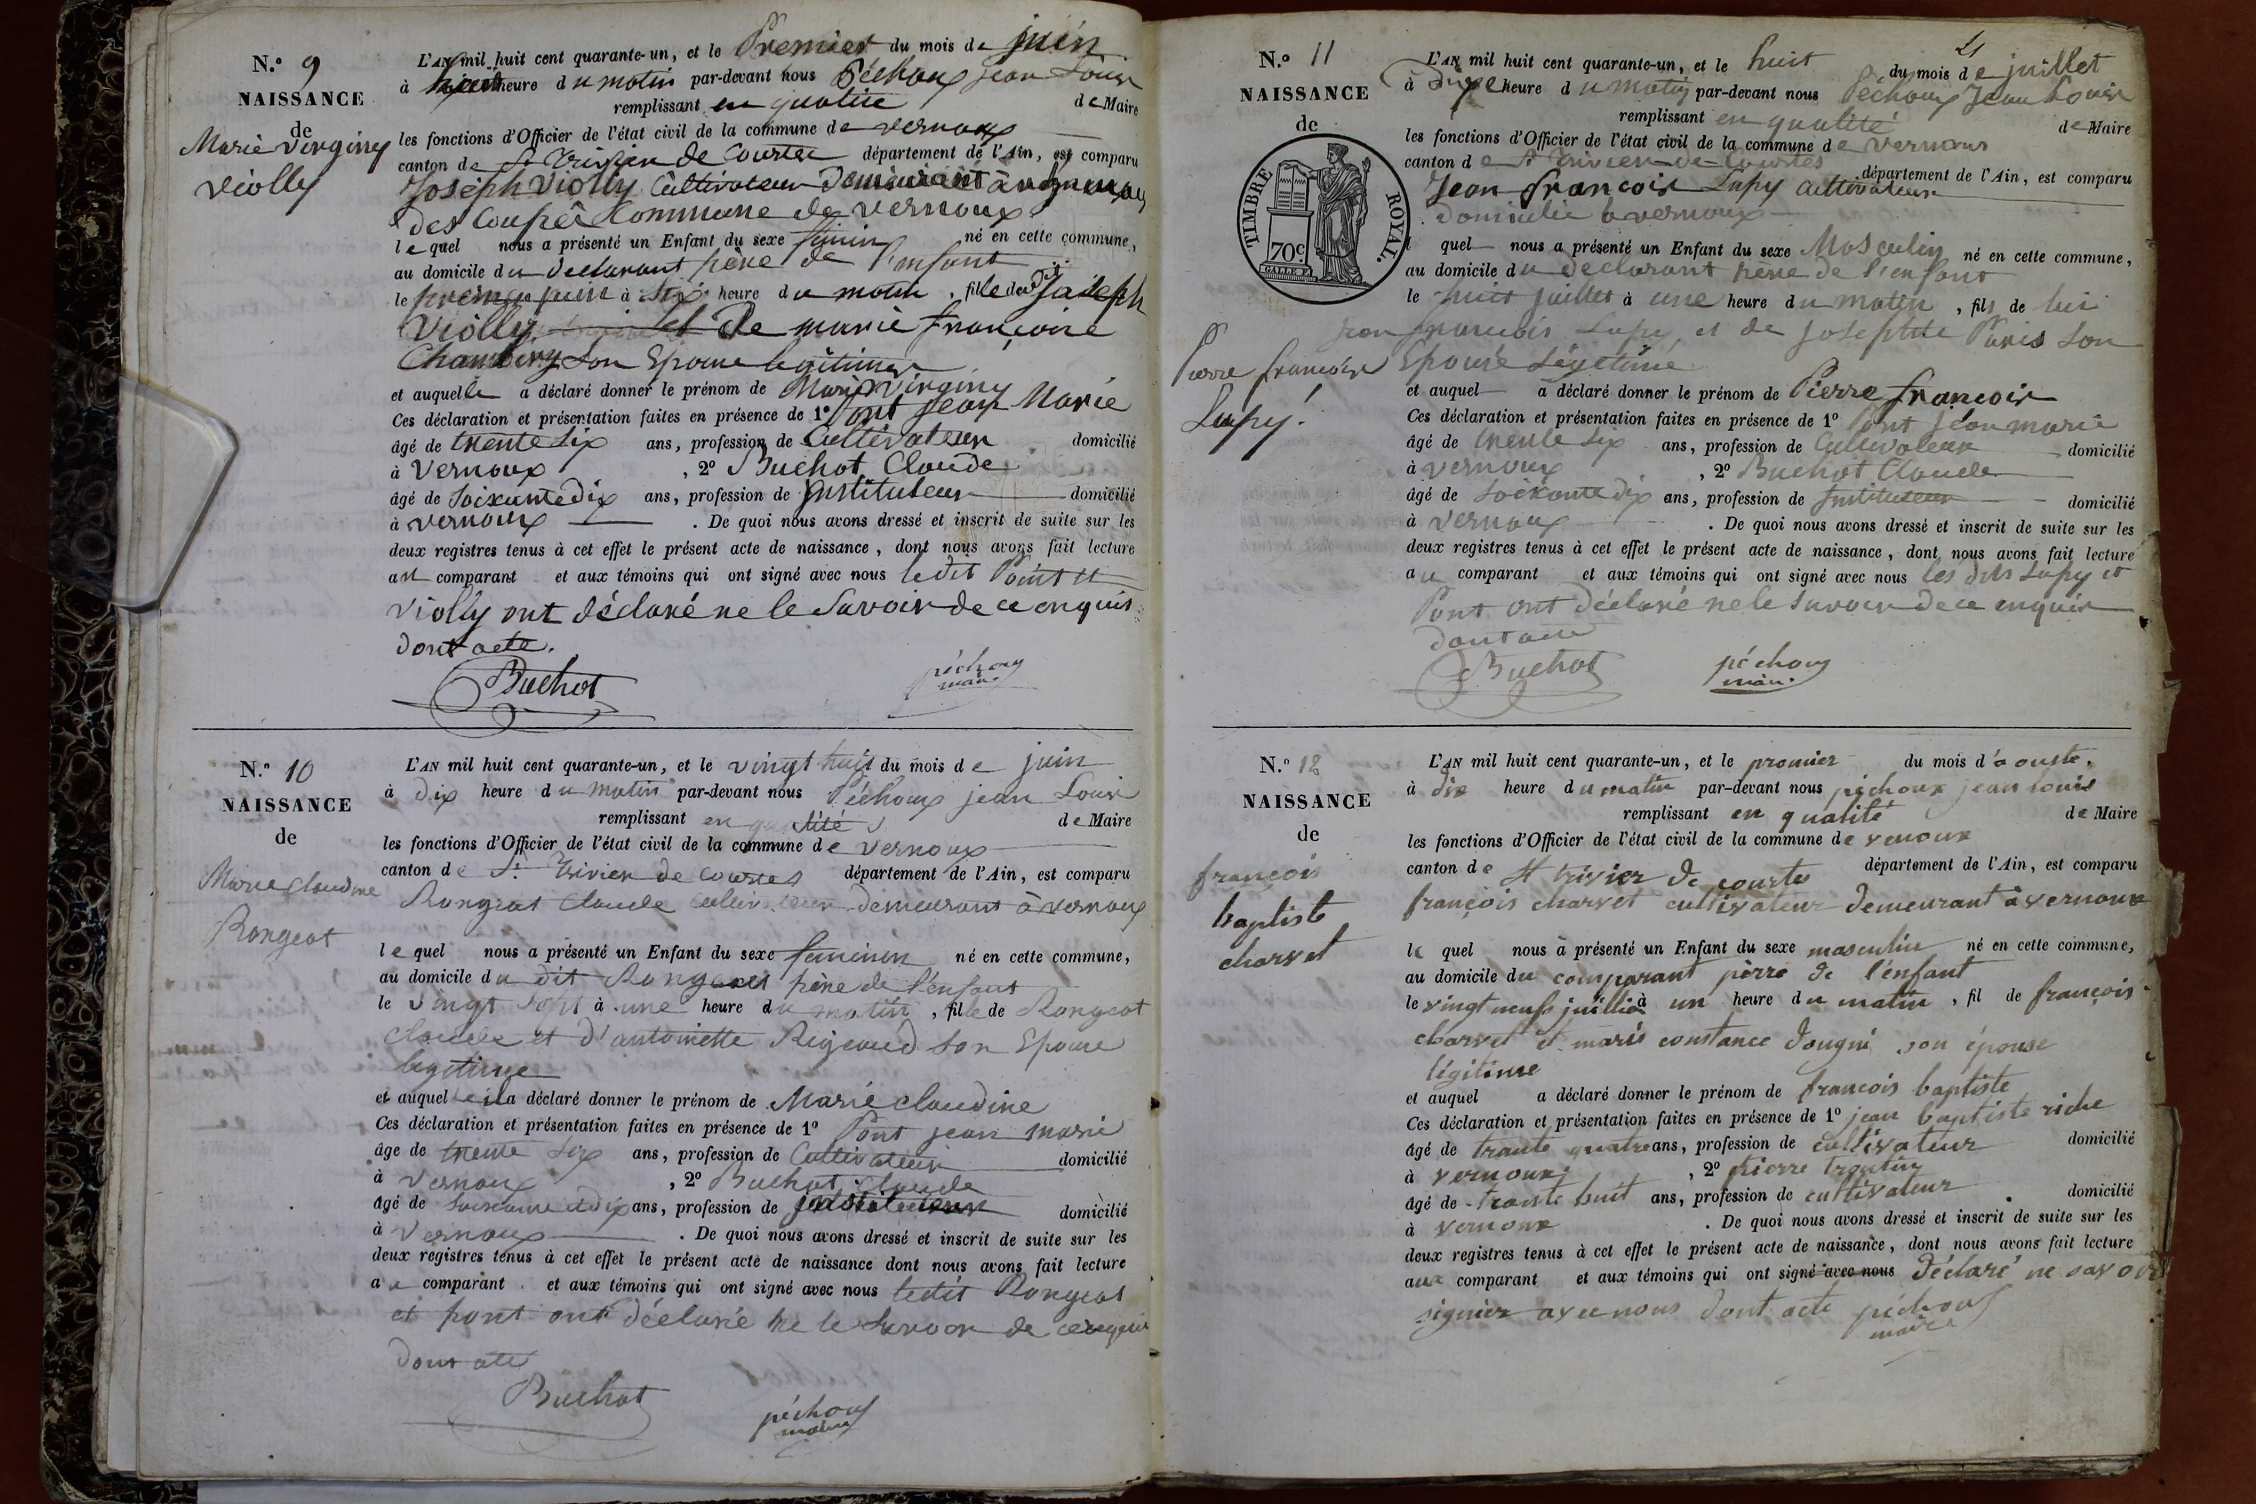 N.º 9
NAISSANCE
de
Marie Virginy
Violly
L'AN mil huit cent quarante-un, et le Premier du mois de juin
à heure du matin par-devant nous Péchoux Jean Louis
remplissant en qualité de Maire
les fonctions d'Officier de l'état civil de la commune de vernoux
canton de St Trivier de Courtes département de l'Ain, est comparu
Joseph Violly Cultivateur Demeurant à
des Coupée Commune de Vernoux
lequel nous a présenté un Enfant du sexe né en cette commune,
au domicile du declarant père de l'enfant
le premie juin à Six heure du matin, fille de Joseph
Violly et De marie françoise
Chambéry Son Epouse legitime
et auquelle a déclaré donner le prénom de Marie Virginy
Ces déclaration et présentation faites en présence de 1º Pont Jean Marie
âgé de trente Six ans, profession de Cultivateur domicilié
à Vernoux, 2º Buchot Claude
âgé de Soixante dix ans, profession de Instituteur domicilié
à vernoux. De quoi nous avons dressé et inscrit de suite sur les
deux registres tenus à cet effet le présent acte de naissance, dont nous avons fait lecture
au comparant et aux témoins qui ont signé avec nous ledit Pont et
Violly ont déclaré ne le Savoir de ce enquis
dont acte.
Buchot péchoux
maire
N.º 10
NAISSANCE
de
Marie Claudine
Rongeat
L'AN mil huit cent quarante-un, et le vingt huit du mois de juin
à dix heure du matin par-devant nous Péchoux jean Louis
remplissant en qualité de Maire
les fonctions d'Officier de l'état civil de la commune de vernoux
canton de St Trivier de Courtes département de l'Ain, est comparu
Rongeat Claude Cultivateur demeurant à vernoux
lequel nous a présenté un Enfant du sexe feminin né en cette commune,
au domicile du dit Rongeat père de l'enfant
le vingt Sept à une heure du matin, fille de Rongeat
Claude et d'antoinette Rigeaud Son Epouse
legitime
et auquelle il a déclaré donner le prénom de Marie claudine
Ces déclaration et présentation faites en présence de 1º Pont jean marie
âge de trente Six ans, profession de Cultivateur domicilié
à Vernoux, 2º Buchot Claude
âgé de Soixante et dix ans, profession de instituteur domicilié
à Vernoux. De quoi nous avons dressé et inscrit de suite sur les
deux registres tenus à cet effet le présent acte de naissance dont nous avons fait lecture
au comparant et aux témoins qui ont signé avec nous ledit Rongeat
et pont ont déclaré ne le Savoir de ce enquis
dont acte
Buchot
péchoux
maire
N.º 11
NAISSANCE
de
TIMBRE ROYAL.
70c
Pierre françois
Lupy.
L'AN mil huit cent quarante-un, et le huit du mois de juillet
à dix heure du matin par-devant nous Péchoux Jean Louis
remplissant en qualité de Maire
les fonctions d'Officier de l'état civil de la commune de vernoux
canton de St Trivier de Courtes département de l'Ain, est comparu
Jean françois Lupy Cultivateur
domicilié à vernoux
quel nous a présenté un Enfant du sexe Masculin né en cette commune,
au domicile du déclarant père de l'enfant
le huit juillet à une heure du matin, fils de lui
jean françois Lupy et de josephte Paris Son
Epouse Légitime
et auquel a déclaré donner le prénom de Pierre françois
Ces déclaration et présentation faites en présence de 1º Pont jéan marie
âgé de trente Six ans, profession de Cultivateur domicilié
à vernoux, 2º Buchot Claude
âgé de Soixante dix ans, profession de Instituteur domicilié
à vernoux. De quoi nous avons dressé et inscrit de suite sur les
deux registres tenus à cet effet le présent acte de naissance, dont nous avons fait lecture
au comparant et aux témoins qui ont signé avec nous les dits Lupy et
Pont ont déclaré ne le Savoir de ce enquis
dont acte
Buchot péchoux
maire
N.º 12
NAISSANCE
de
françois
baptiste
charvet
L'AN mil huit cent quarante-un, et le promier du mois d'aouste.
à dix heure du matin par-devant nous péchoux jean louis
remplissant en qualité de Maire
les fonctions d'Officier de l'état civil de la commune de venoux
canton de St trivier de courtes département de l'Ain, est comparu
françois charvet cultivateur demeurant à vernoux
le quel nous a présenté un Enfant du sexe masculin né en cette commune,
au domicile du comparant pèrre de l'énfant
le vingt neuf juillié à un heure du matin, fil de françois
charvet et marie constance dougni son épouse
légitime
et auquel a déclaré donner le prénom de françois baptiste
Ces déclaration et présentation faites en présence de 1º jean baptiste riche
âgé de trante quatre ans, profession de cultivateur domicilié
à vernoux, 2º pierre
âgé de trante huit ans, profession de cultivateur domicilié
à vernoux. De quoi nous avons dressé et inscrit de suite sur les
deux registres tenus à cet effet le présent acte de naissance, dont nous avons fait lecture
aux comparant et aux témoins qui ont signé avec nous déclaré ne savoir
signier avec nous dont acte péchoux
maire